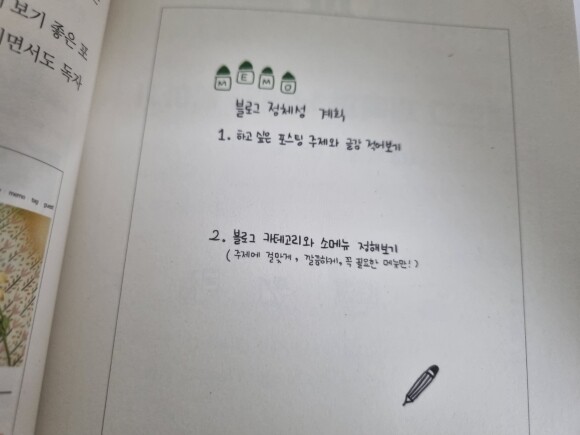 보기 좋은 포
면서도 독자
MEMO
블로그 정체성 계획
1. 하고 싶은 포스팅 주제와 글감 적어보기
2. 블로그 카테고리와 소메뉴 정해보기
(주제에 걸맞게, 깔끔하게, 꼭 필요한 메뉴만!)